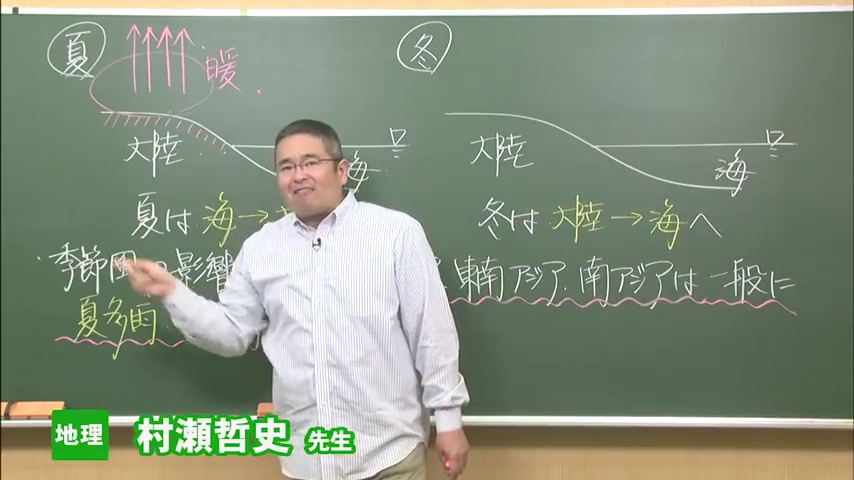 夏
冬
暖
大陸
海
大陸
海
夏は 海→
冬は 大陸→海へ
季節風の影響
東南アジア.南アジアは一般に
夏多雨
地理 村瀬哲史 先生